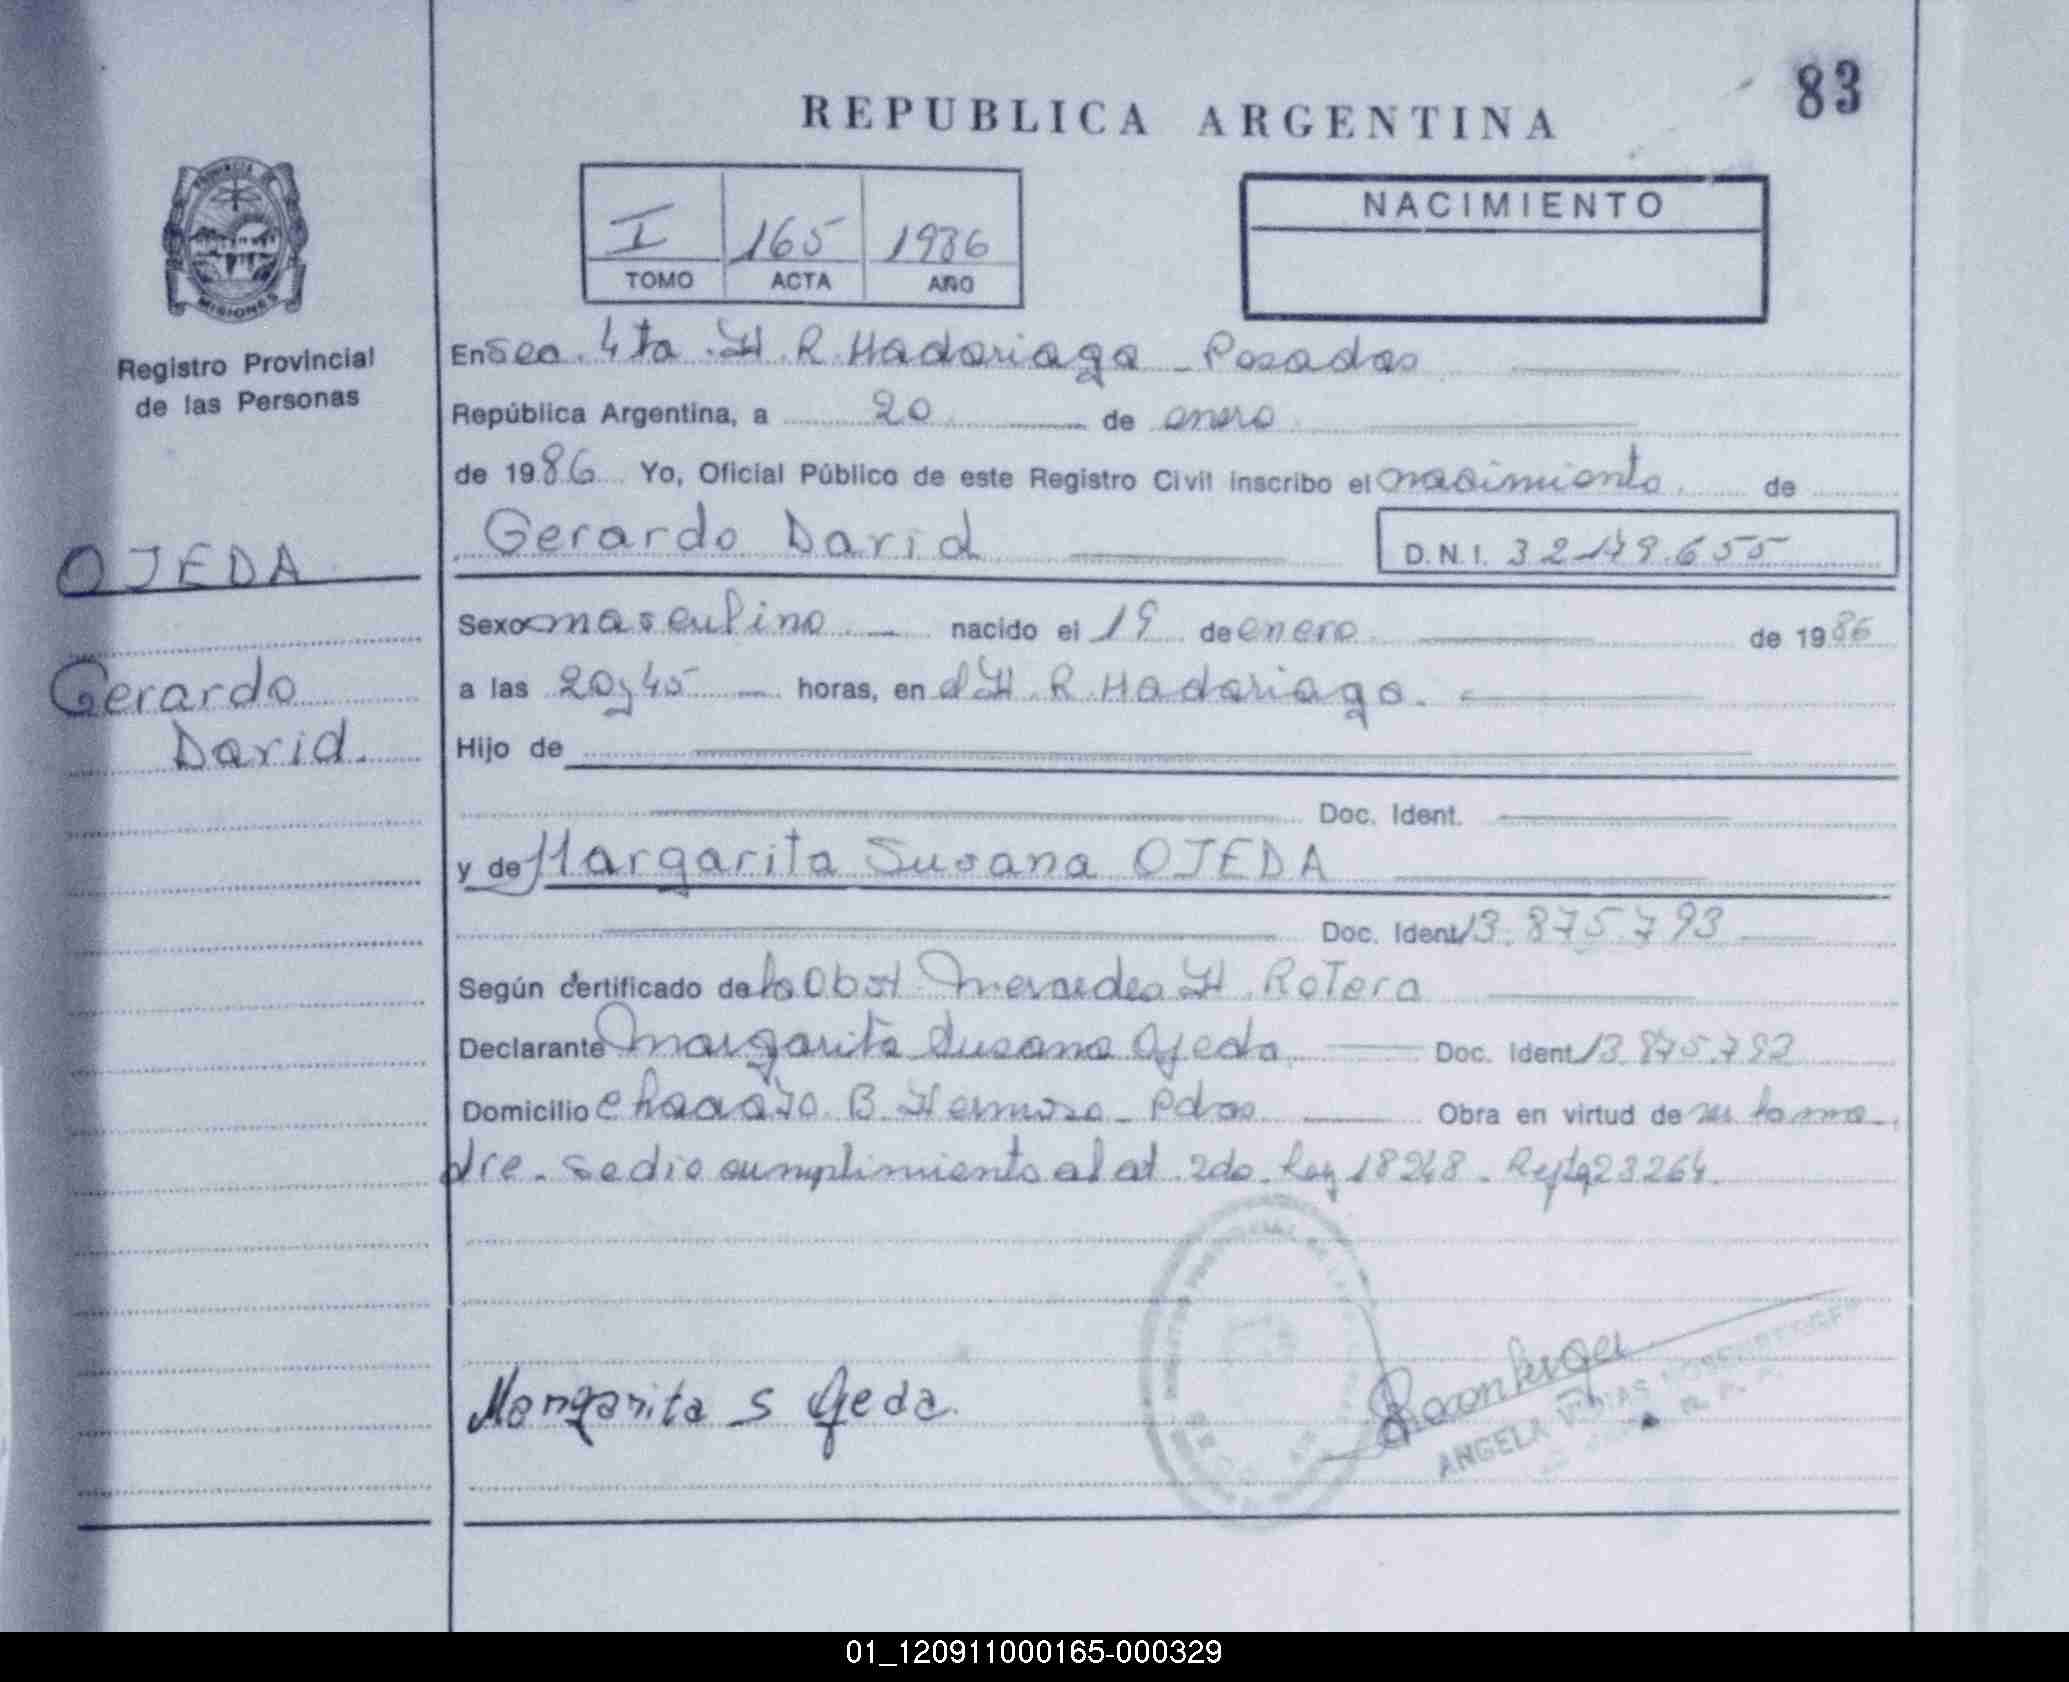 83
REPUBLICA ARGENTINA
PROVINCIA DE
MISIONES
Registro Provincial
de las Personas
I 165 1986
TOMO ACTA AÑO
NACIMIENTO
En Sec. 4ta. H. R. Madariaga - Posadas
República Argentina, a 20 de enero
de 1986 Yo, Oficial Público de este Registro Civil inscribo el nacimiento de
Gerardo David D.N.I. 32.179.655
OJEDA
Gerardo
David.
Sexo masculino - nacido el 19 de enero de 1986
a las 20 y 45 - horas, en el H. R. Madariaga.
Hijo de
Doc. Ident.
y de Margarita Susana OJEDA
Doc. Ident 13.875.793
Según certificado de la Obst. Mercedes H. Rotera
Declarante Margarita Susana Ojeda. Doc. Ident 13.875.793
Domicilio Chacra 70. B. Hermoso - Pdas Obra en virtud de ser la ma-
dre - Se dio cumplimiento al art 2do. Ley 18248. 23264.
Margarita S Ojeda.
ANGELA
01_120911000165-000329